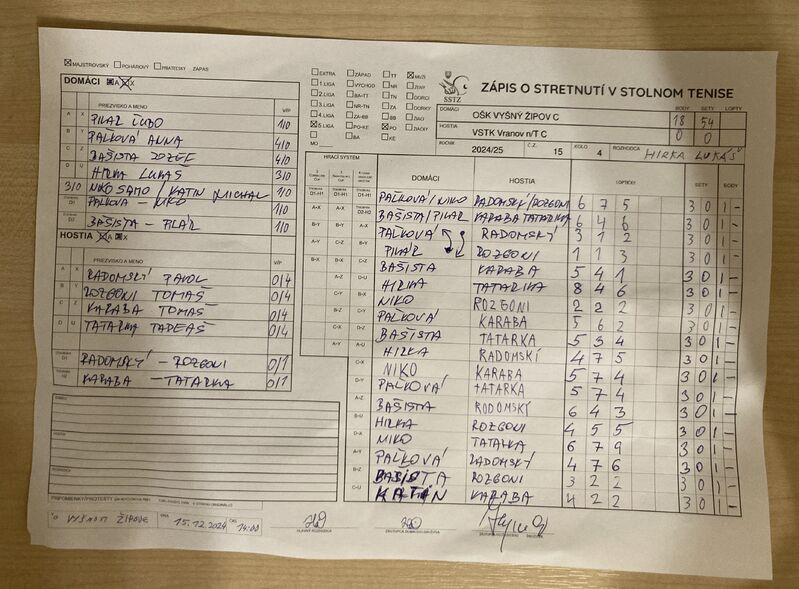 MAJSTROVSKÝ POHÁROVÝ PRIATEĽSKÝ ZÁPAS
DOMÁCI A X
PRIEZVISKO A MENO V/P
A X PILÁR ĽUBO 1/0
B Y PALKOVÁ ANNA 4/0
C Z BAŠISTA JOZEF 4/0
D U HIRKA LUKÁŠ 3/0
3/0 NIKO SAMO / KATIN MICHAL 1/0
D1 PALKOVA - NIKO 1/0
D2 BAŠISTA - PILÁR 1/0
HOSTIA A X
PRIEZVISKO A MENO V/P
A X RADOMSKÝ PAVOL 0/4
B Y ROZGONI TOMÁŠ 0/4
C Z KARABA TOMÁŠ 0/4
D U TATARKA TADEÁŠ 0/4
D1 RADOMSKÝ - ROZGONI 0/1
D2 KARABA - TATARKA 0/1
DOMÁCI
HOSTIA
ROZHODCA
PRIPOMIENKY/PROTESTY
EXTRA ZÁPAD TT MUŽI
1. LIGA VÝCHOD NR ŽENY
2. LIGA BA-TT TN DORCI
3. LIGA NR-TN ZA DORKY
4. LIGA ZA-BB BB ŽIACI
5. LIGA PO-KE PO ŽIAČKY
BA KE
MO
SSTZ
ZÁPIS O STRETNUTÍ V STOLNOM TENISE
BODY SETY LOPTY
DOMÁCI OŠK VYŠNÝ ŽIPOV C 18 54
HOSTIA VSTK Vranov n/T C 0 0
ROČNÍK 2024/25 Č.Z. 15 KOLO 4 ROZHODCA HIRKA LUKÁŠ
HRACÍ SYSTÉM DOMÁCI HOSTIA LOPTIČKY SETY BODY
D1-H1 D1-H1 D1-H1 PAĽKOVÁ/NIKO RADOMSKÝ/ROZGONI 6 7 5 3 0 1 -
A-X A-X D2-H2 BAŠISTA/PILAR KARABA TATARKA 6 4 6 3 0 1 -
B-Y B-Y A-X PAĽKOVÁ RADOMSKÝ 3 1 2 3 0 1 -
A-Y C-Z B-Y PILÁR ROZGONI 1 1 3 3 0 1 -
B-X B-X C-Z BAŠISTA KARABA 5 4 1 3 0 1 -
A-Z D-U HIRKA TATARKA 8 4 6 3 0 1 -
C-Y B-X NIKO ROZGONI 2 2 2 3 0 1 -
B-Z C-Y PAĽKOVÁ KARABA 5 6 2 3 0 1 -
C-X D-Z BAŠISTA TATARKA 5 3 4 3 0 1 -
A-Y A-U HIRKA RADOMSKÍ 4 7 5 3 0 1 -
C-X NIKO KARABA 5 7 4 3 0 1 -
D-Y PAĽKOVÁ TATARKA 5 7 4 3 0 1 -
A-Z BAŠISTA RODOMSKÝ 6 4 3 3 0 1 -
B-U HIRKA ROZGONI 4 5 5 3 0 1 -
D-X NIKO TATALKA 6 7 9 3 0 1 -
A-Y PAĽKOVÁ RADOMSKÝ 4 7 6 3 0 1 -
B-Z BAŠISTA ROZGONI 3 2 2 3 0 1 -
C-U KATIN KARABA 4 2 2 3 0 1 -
VYŠNOM ŽIPOVE DŇA 15.12.2024 ČAS 14:00
HLAVNÝ ROZHODCA